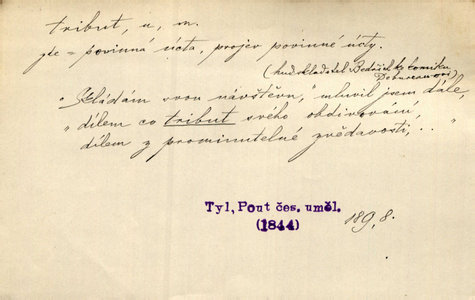 tribut, u, m.
zde = povinná úcta, projev povinné úcty.
(hud. skladatel Bedřich ke komiku
„Skládám svou návštěvu,“ mluvil jsem dále,
„dílem co tribut svého obdivování,
dílem z prominutelné zvědavosti, .. “
Tyl, Pout čes. uměl.
(1844)
189, 8.